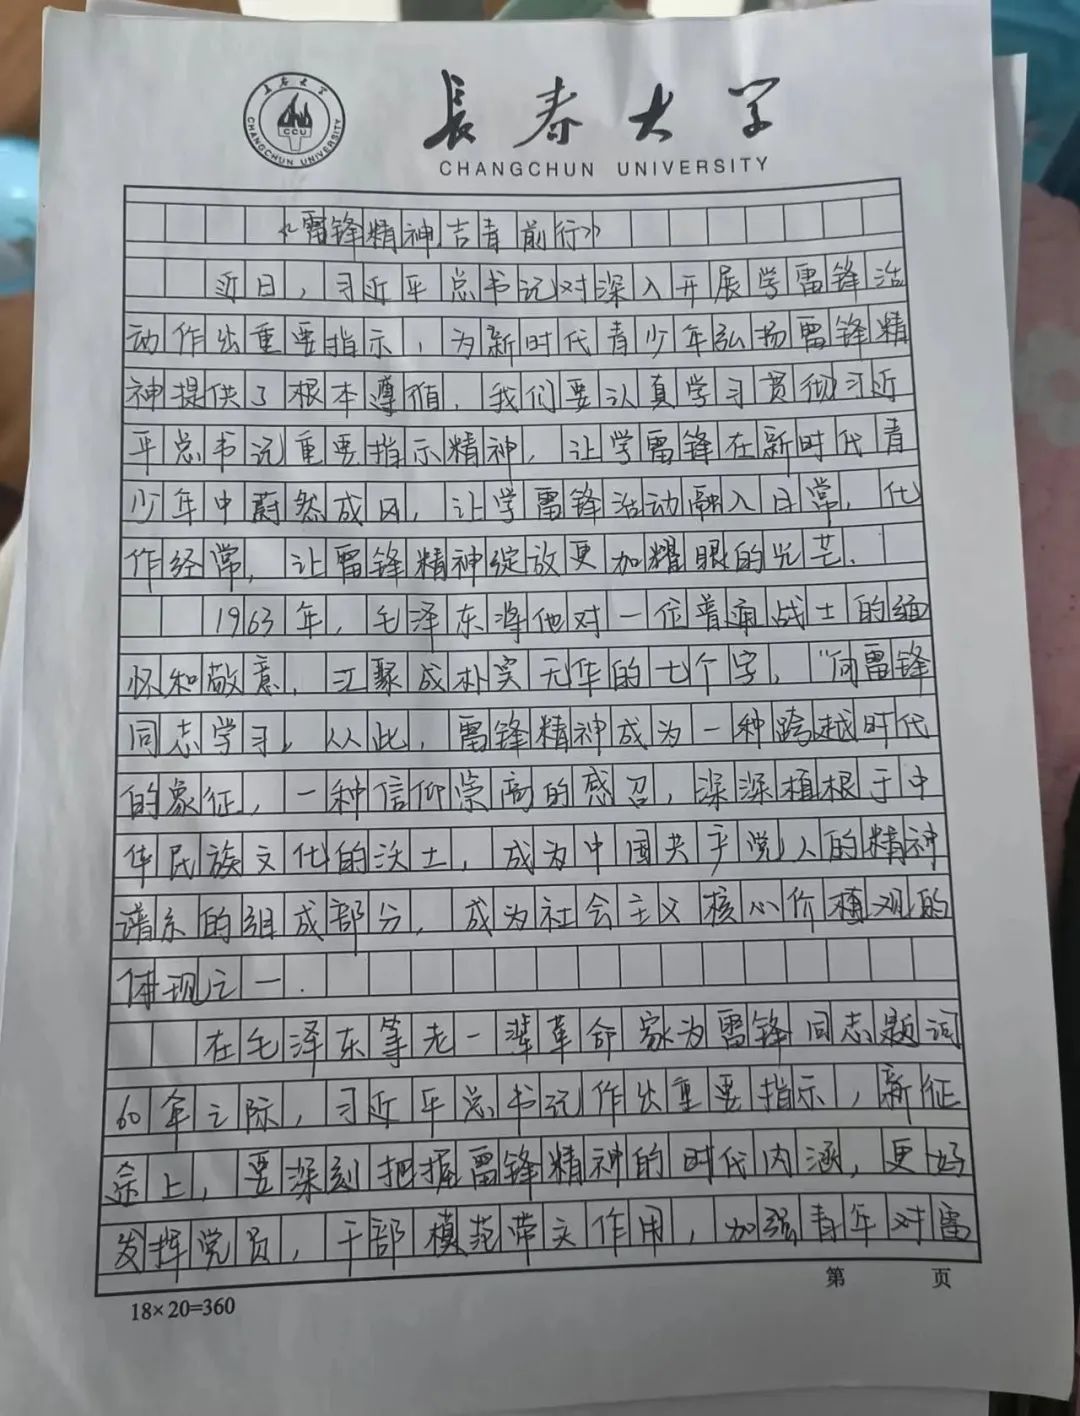 長春大学
CHANGCHUN UNIVERSITY
長春大学
CCU
CHANGCHUN UNIVERSITY
《雷锋精神吉青前行》
近日，习近平总书记对深入开展学雷锋活
动作出重要指示，为新时代青少年弘扬雷锋精
神提供了根本遵值，我们要认真学习贯彻习近
平总书记重要指示精神，让学雷锋在新时代青
少年中蔚然成风，让学雷锋活动融入日常，化
作经常，让雷锋精神绽放更加耀眼的光芒.
1963年，毛泽东将他对一位普通战士的缅
怀和敬意，汇聚成朴实无华的七个字，“向雷锋
同志学习，从此，雷锋精神成为一种跨越时代
的象征，一种信仰崇高的感召，深深植根于中
华民族文化的沃土，成为中国共产党人的精神
谱系的组成部分，成为社会主义核心价值观的
体现之一.
在毛泽东等老一辈革命家为雷锋同志题词
60年之际，习近平总书记作出重要指示，新征
途上，要深刻把握雷锋精神的时代内涵，更好
发挥党员，干部模范带头作用，加强青年对雷
第 页
18×20=360